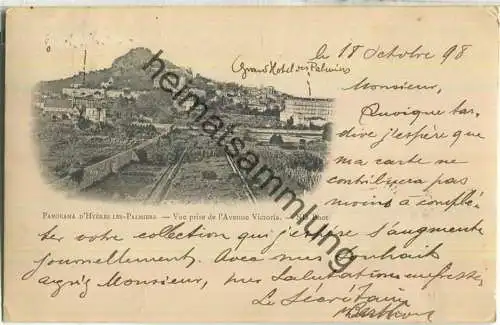 le 18 Octobre 98
Grand Hotel des Palmiers
Monsieur,
Quoique tar-
dive j'espère que
ma carte ne
contribuera pas
moins à complé-
PANORAMA D'HYÈRES-LES-PALMIERS. — Vue prise de l'Avenue Victoria. —
ter votre collection qui j'espère s'augmente
journellement. Avec mes souhaits
agréez Monsieur, mes salutations empressées
Le Secrétaire
heimatsammlung.de